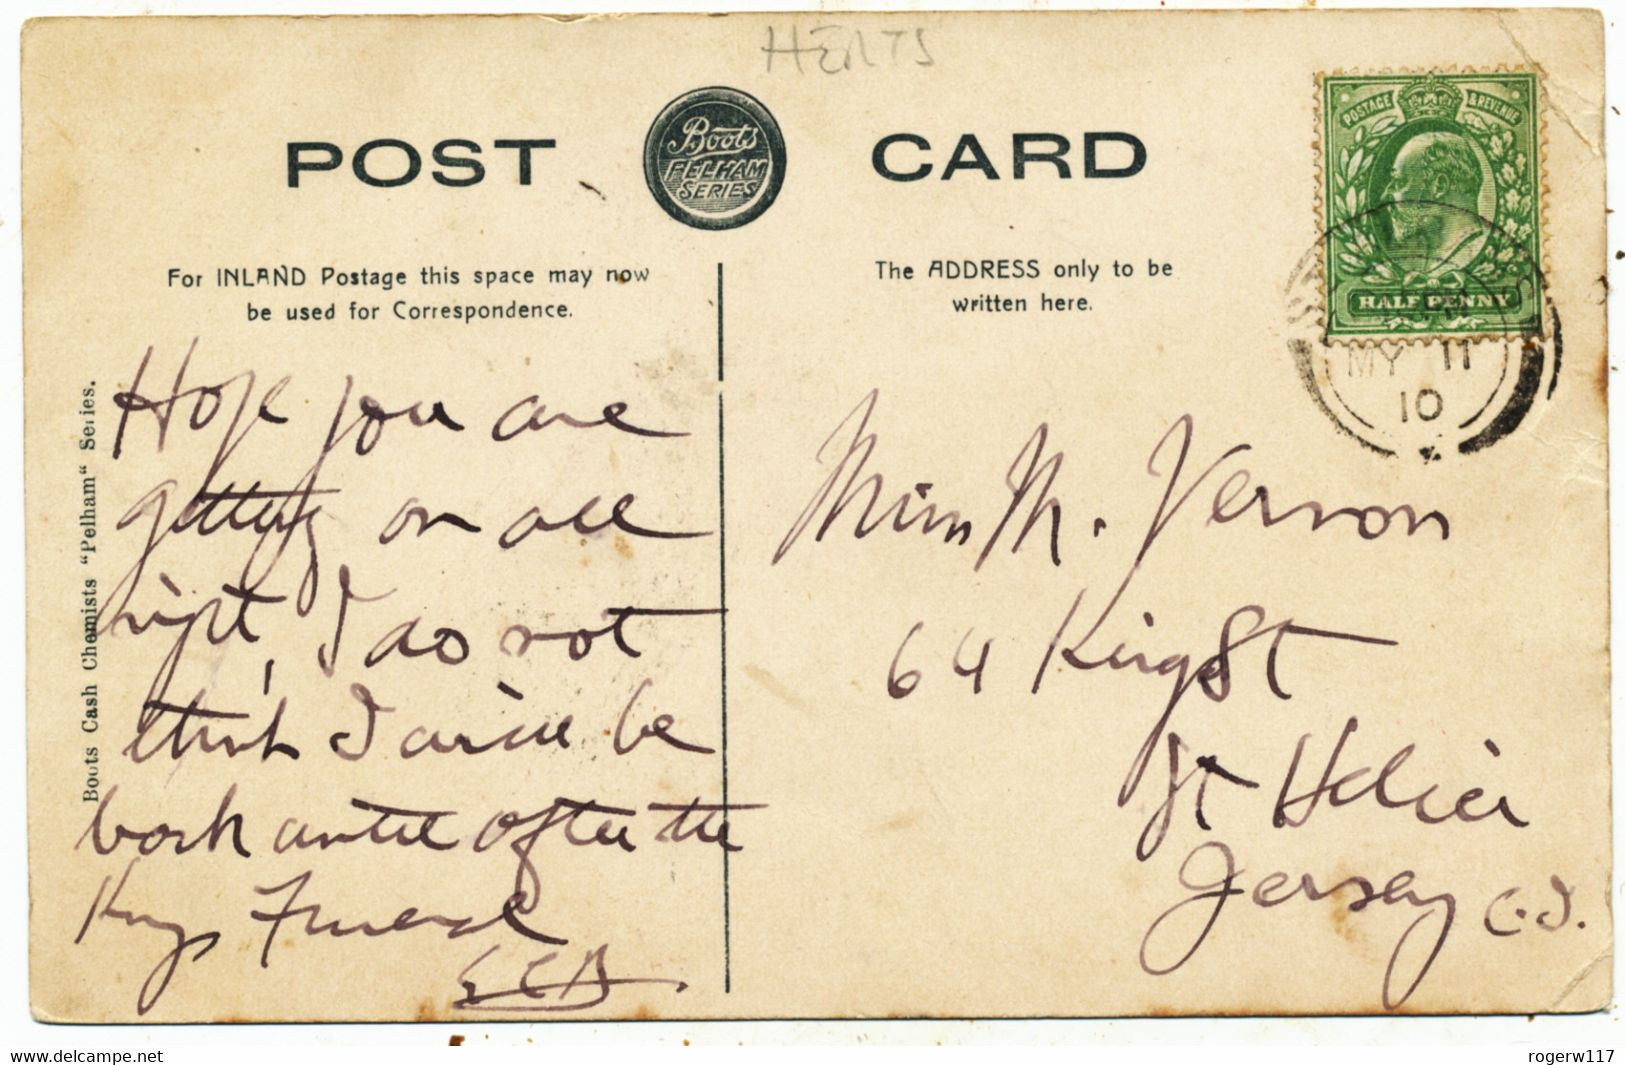 HERTS
POST CARD
Boots
PELHAM
SERIES
POSTAGE & REVENUE
HALF PENNY
MY 11
10
For INLAND Postage this space may now
be used for Correspondence.
The ADDRESS only to be
written here.
Boots Cash Chemists "Pelham" Series.
Hope you are
getting on all
right, I do not
think I will be
back until after the
Kings Funeral
ECB.
Miss M. Vernon
64 King St
St Helier
Jersey C.I.
rogerw117